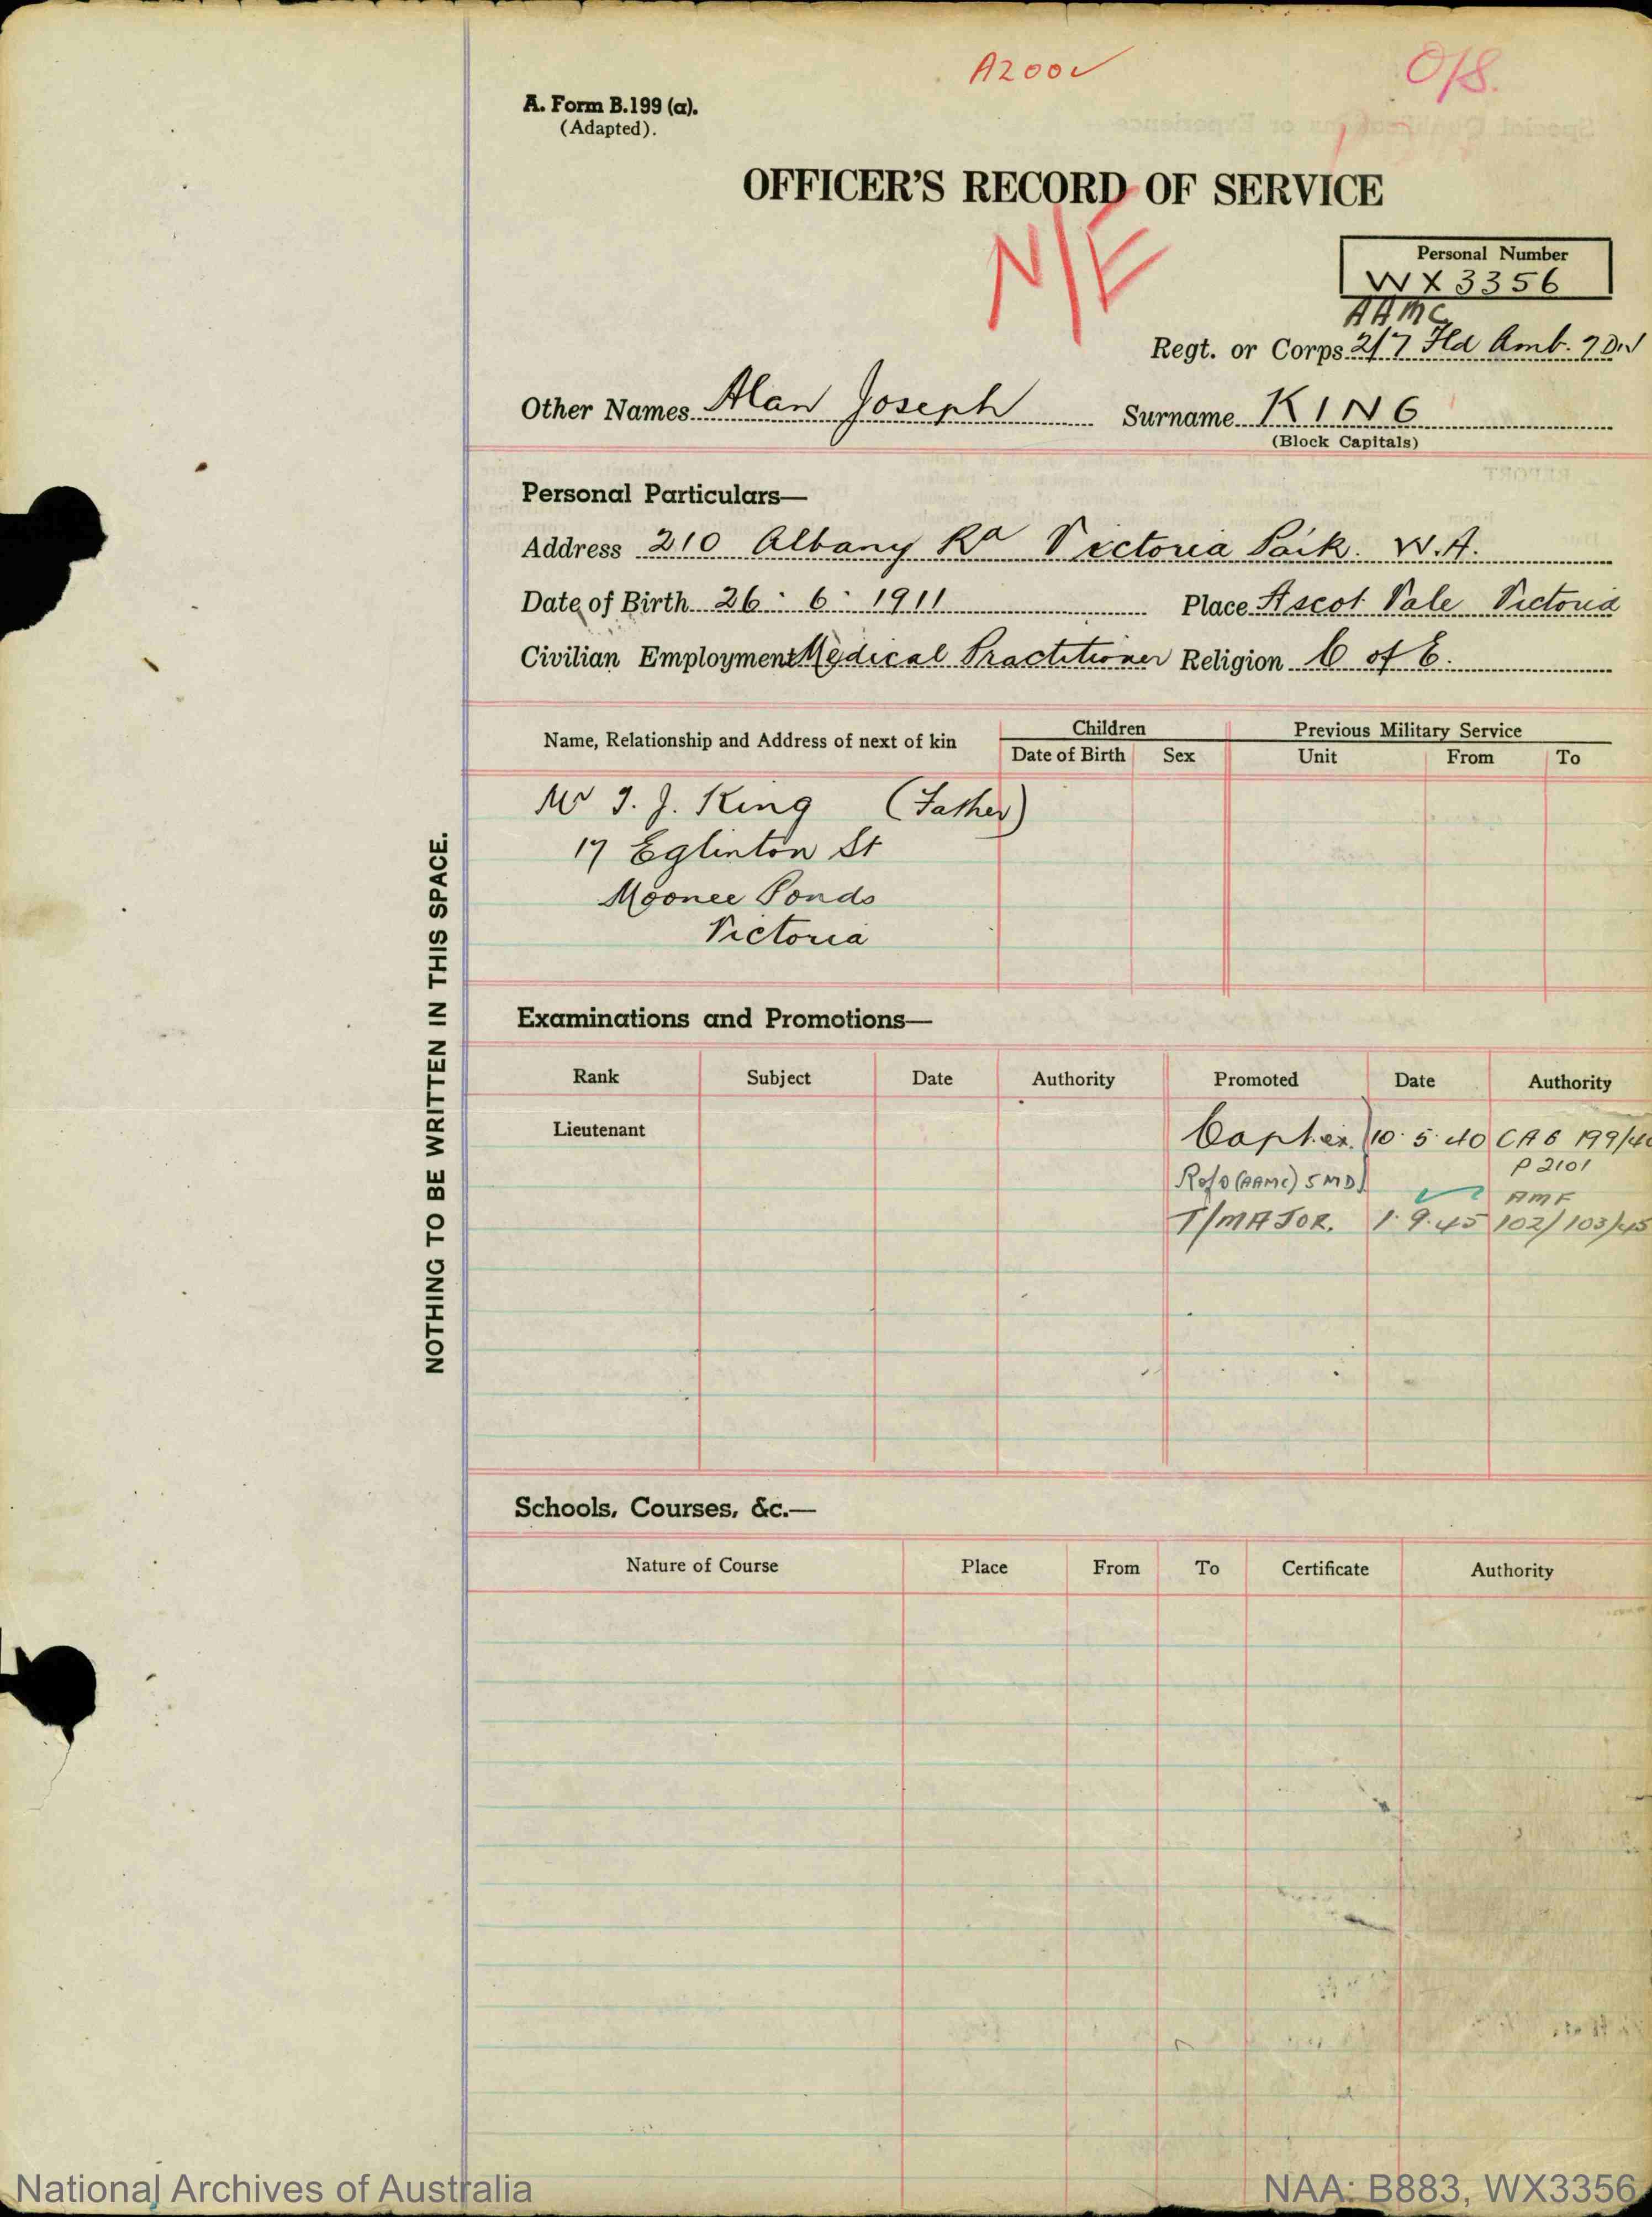 A200
O/S.
A. Form B.199 (a).
(Adapted).
OFFICER'S RECORD OF SERVICE
N/E
Personal Number
WX3356
AAMC
Regt. or Corps 2/7 Fld Amb. 7 Div
Other Names Alan Joseph Surname KING
(Block Capitals)
Personal Particulars—
Address 210 Albany Rd Victoria Park. W.A.
Date of Birth 26 : 6 : 1911 Place Ascot Vale Victoria
Civilian Employment Medical Practitioner Religion C of E.
Name, Relationship and Address of next of kin Children Previous Military Service
Date of Birth Sex Unit From To
Mr J. J. King (Father)
17 Eglinton St
Moonee Ponds
Victoria
Examinations and Promotions—
Rank Subject Date Authority Promoted Date Authority
Lieutenant Capt. 10. 5. 40 CAG 199/40
P 2101
RofO (AAMC) 5 MD AMF
T/MAJOR. 1.9.45 102/103/45
Schools, Courses, &c.—
Nature of Course Place From To Certificate Authority
NOTHING TO BE WRITTEN IN THIS SPACE.
National Archives of Australia NAA: B883, WX3356